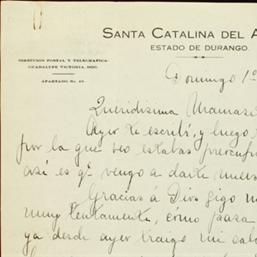 SANTA CATALINA DEL A
ESTADO DE DURANGO.
DIRECCION POSTAL Y TELEGRAFICA:
GUADALUPE VICTORIA, DGO.
APARTADO No.
Domingo 1º
Queridisima Mamasi
Ayer le escribí, y luego
por la que veo estabas preocu
así es qº vengo a darte nuev
Gracias á Dios sigo m
muy lentamente, cómo pasa
ya desde ayer traigo mi